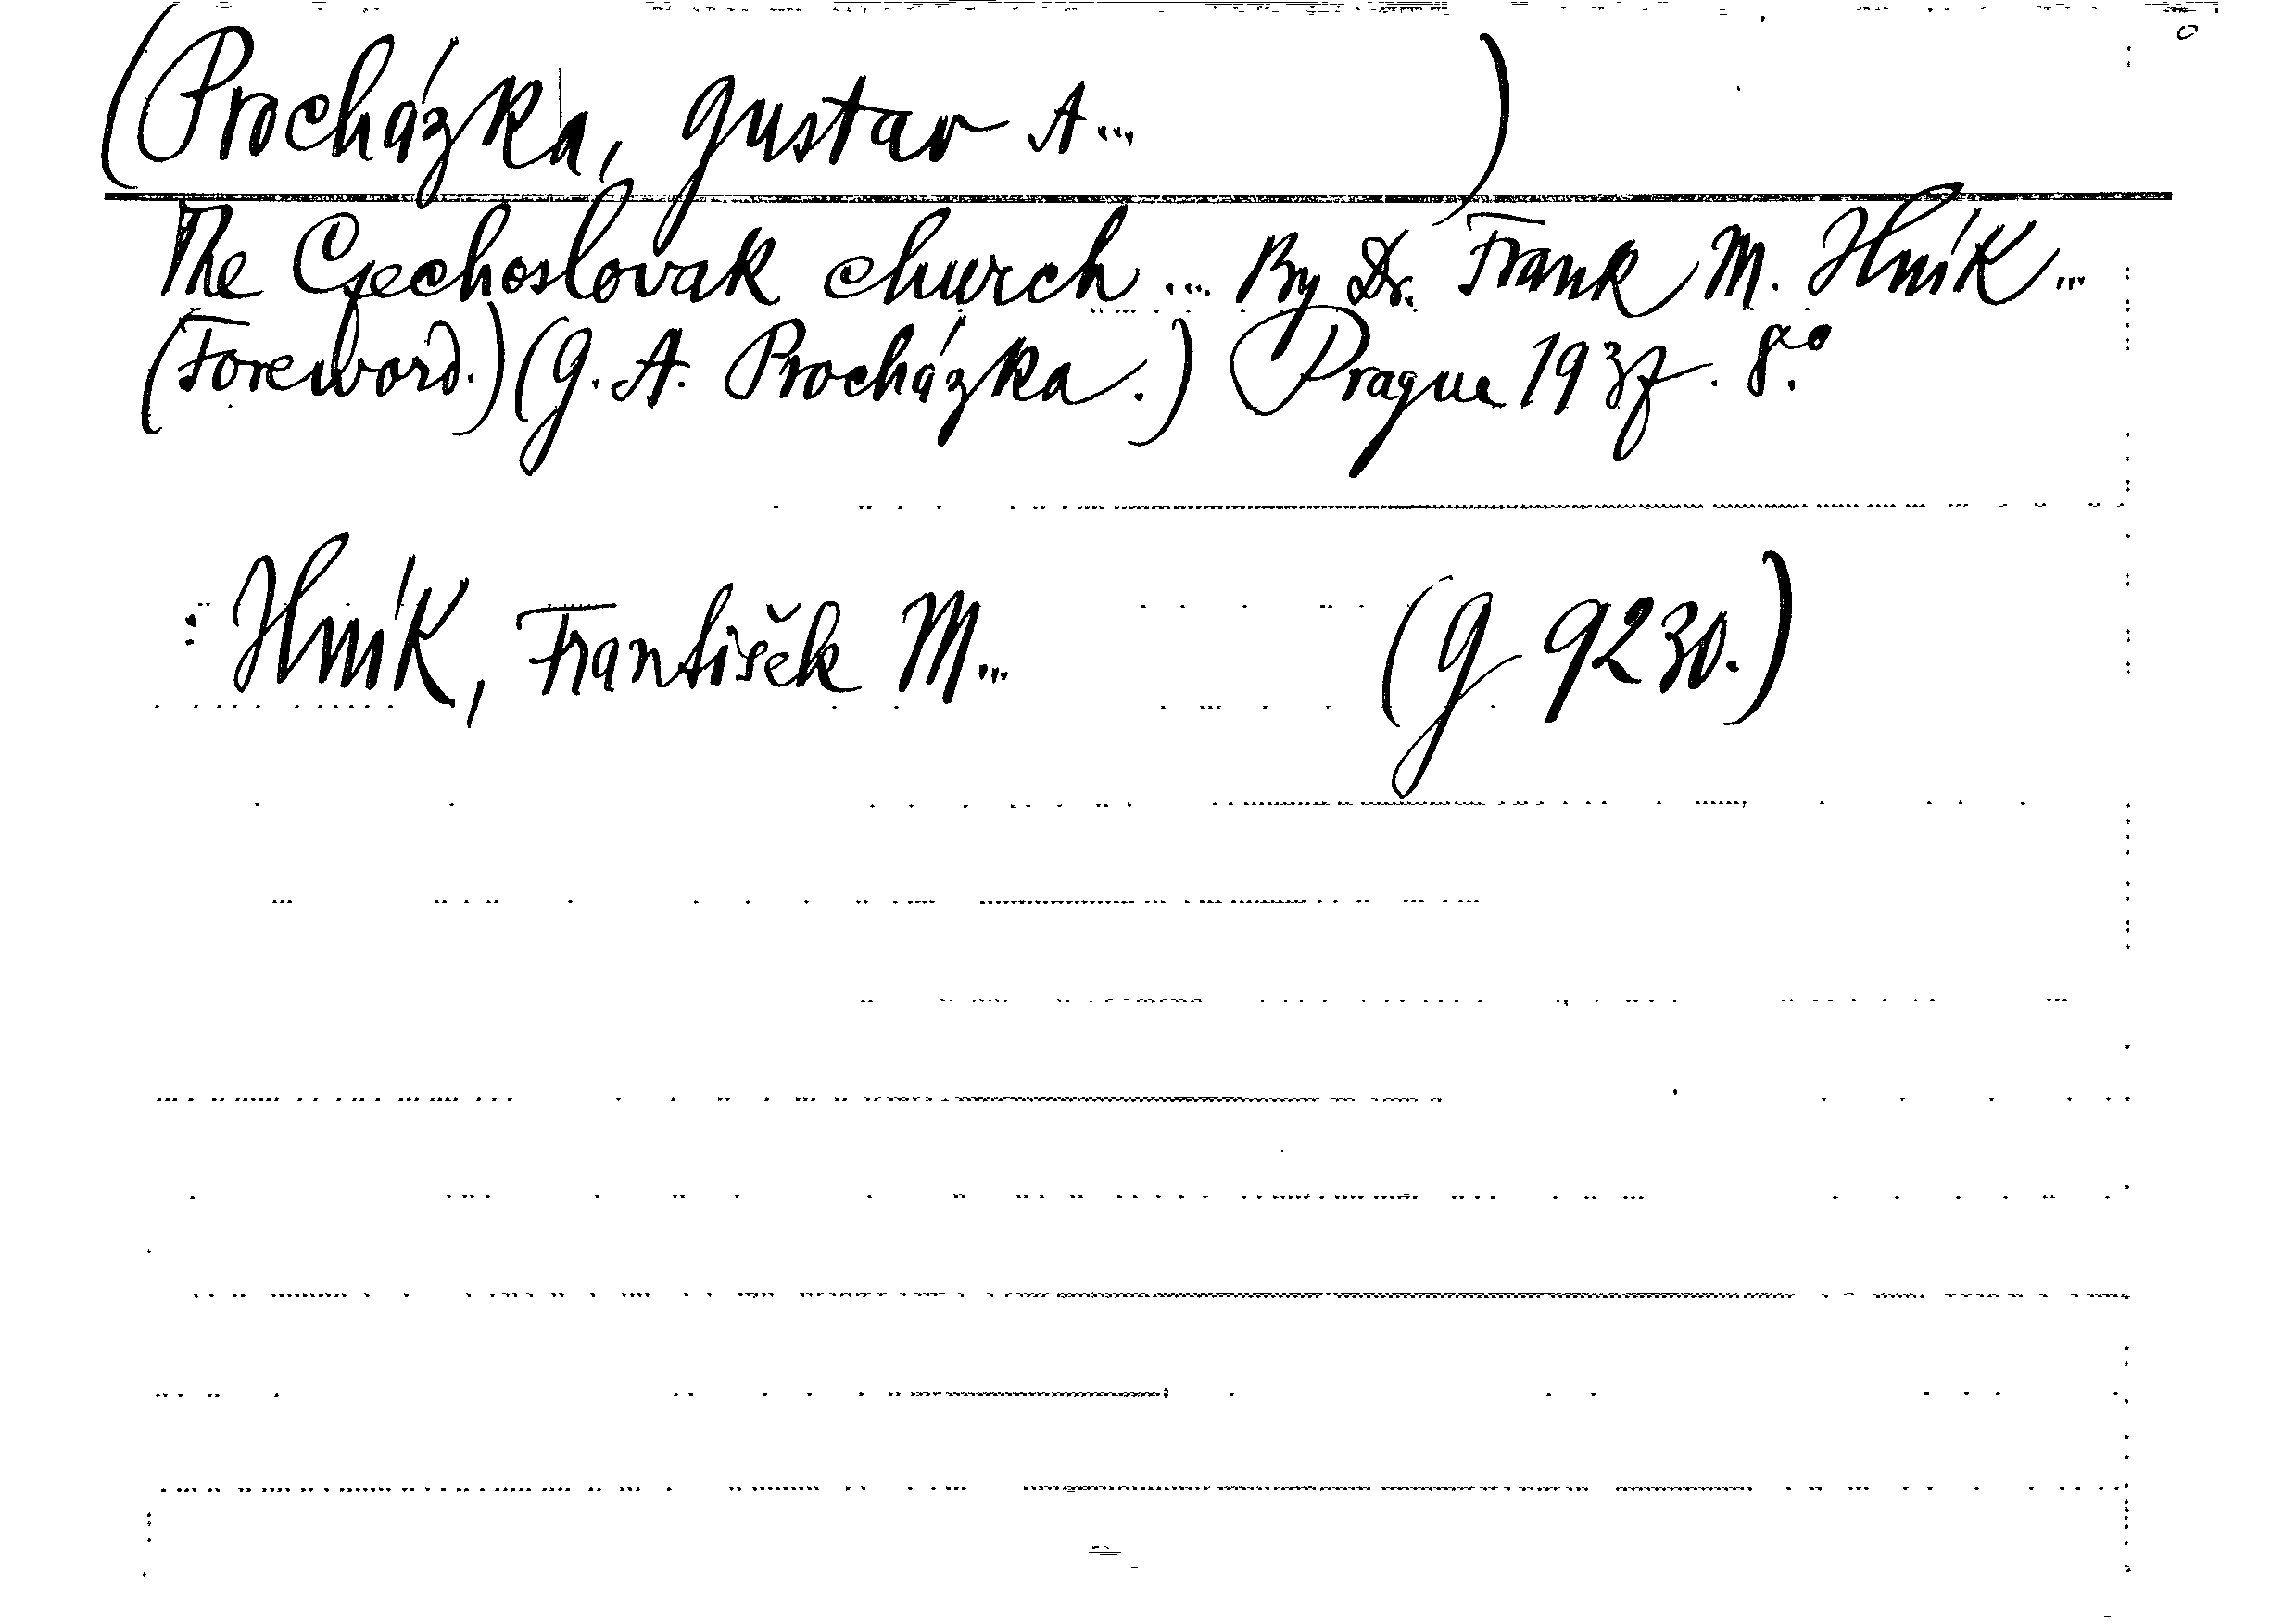 (Procházka, Gustav A... )
The Czechoslovak church ... By Dr. Frank M. Hník ...
(Foreword.) (G. A. Procházka.) Prague 1937. 8.°
: Hník, František M... (G 9230.)